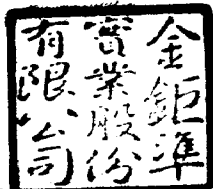 金鉅準
實業股份
有限公司